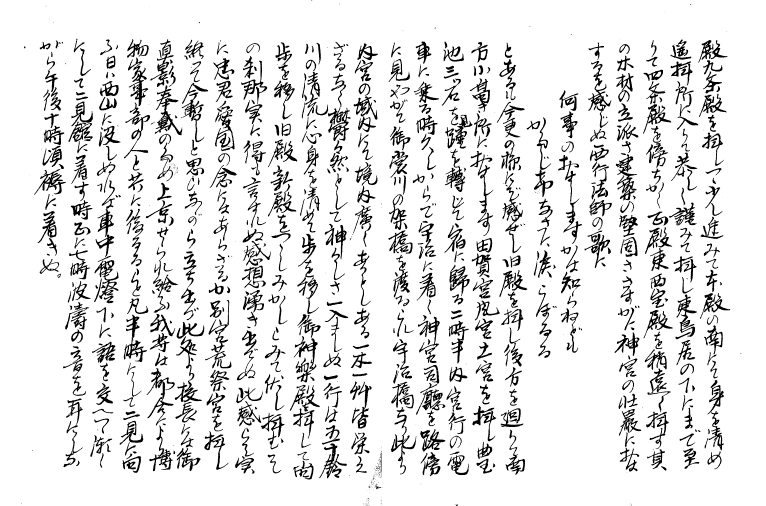 殿九条殿を拝しつゝ少し進みて本殿の南にて身を清め
遥拝所に入りて恭しく謹みて拝し東鳥居の下にまで至
りて四条殿を傍ちかく正殿東西宝殿を稍遠く拝す其
の木材の立派さ建築の堅固ささすがに神宮の壮厳にお
するを感じぬ西行法師の歌に
何事のおはしますかは知らねども
かたじけなさに涙こぼるる
とあるに今更の様にぞ感ぜし旧殿を拝し後方を廻りて南
方小菖所におはします田賀宮風宮土宮を拝し曲玉
池三石を踵を転じて宿に帰る二時半内宮行の電
車に乗る時久しからで宇治に着く神宮司廳を路傍
に見やがて御裳川の架橋を渡るこれ宇治橋なり此より
内宮の域内にて境内廣くあとしある一木一艸皆栄え
ざるなく欝然として神々しさ一入ましぬ一行は五十鈴
川の清流に心身を清めて歩を移し御神楽殿拝して内
歩を移し旧殿新殿をつゝしみかしこみて伏し拝むそ
の刹那実に得も言はれぬ感想湧き出でぬ此感こそ実
に忠君愛国の念にはあらざるか別宮荒祭宮を拝し
終って今暫しと思ひながら立ち出が此処より校長には御
真影奉戴のため上京せられ給ふ我等は都合により博
物家事部の人と共に帰るなり凡半時にして二見に向
ふ日は西山に没しぬれば車中電燈下に語を交へつゝ漸く
にして二見館に着す時正に七時波濤の音を耳にしな
がら午後十時頃褥に着きぬ。